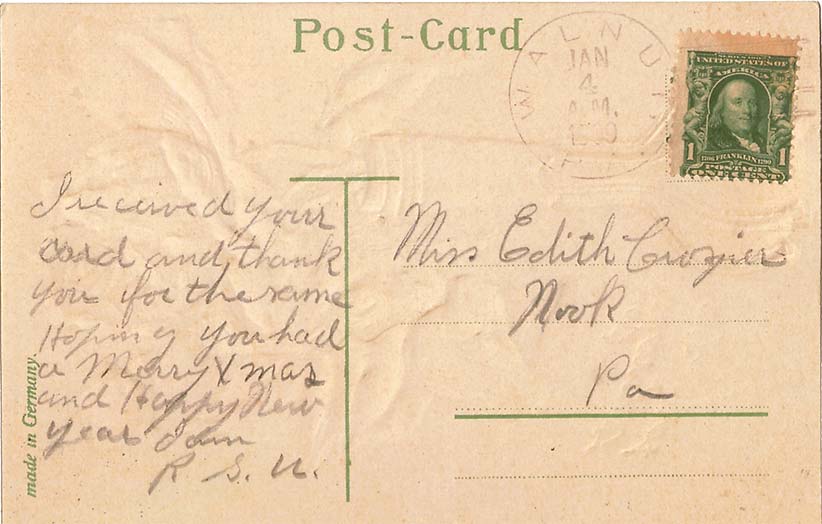 Post-Card
WALNUT
JAN
4
A.M.
SERIES 1902
UNITED STATES OF
AMERICA
1 1
1706 FRANKLIN 1790
POSTAGE
ONE CENT
I received your
card and thank
you for the same
Hoping you had
a Merry Xmas
and Happy New
year I am
R. S. U.
Miss Edith Crozier
Nook
Pa
made in Germany.